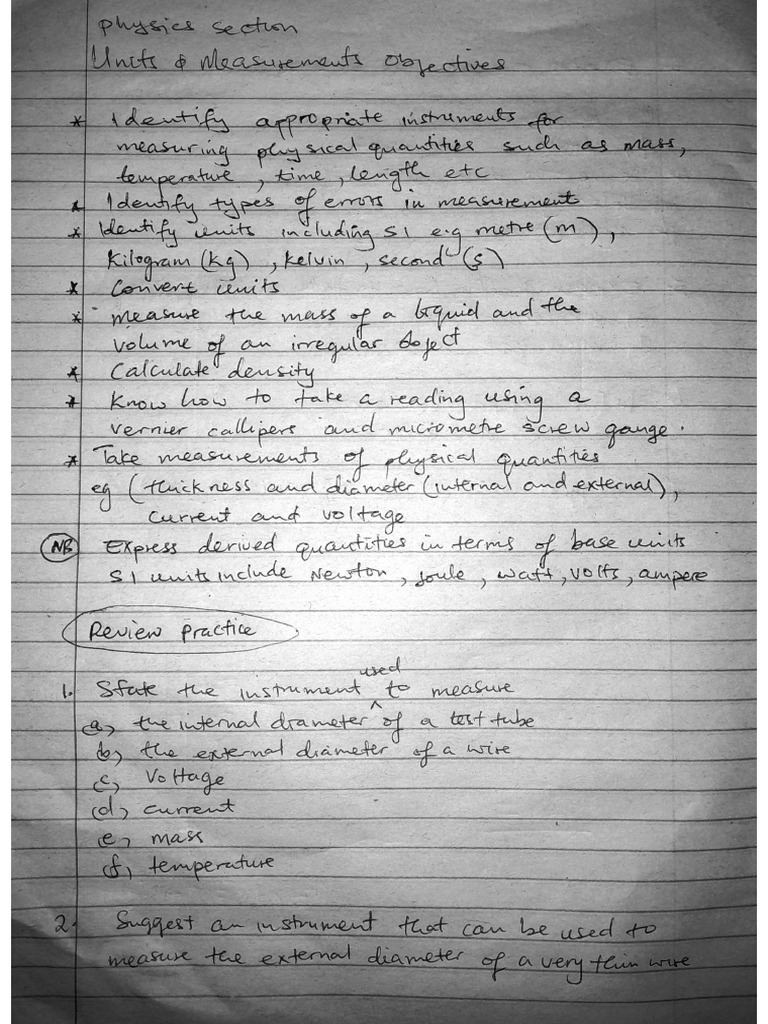 Physics section
Units & Measurements Objectives
* Identify appropriate instruments for
measuring physical quantities such as mass,
temperature, time, length etc
* Identify types of errors in measurement
* Identify units including SI e.g metre (m),
kilogram (kg), kelvin, second (s)
* Convert units
* measure the mass of a liquid and the
volume of an irregular object
* Calculate density
* Know how to take a reading using a
vernier callipers and micrometre screw gauge.
* Take measurements of physical quantities
eg (thickness and diameter (internal and external),
current and voltage
NB Express derived quantities in terms of base units
SI units include Newton, joule, watt, volts, ampere
Review Practice
1. State the instrument used to measure
(a) the internal diameter of a test tube
(b) the external diameter of a wire
(c) Voltage
(d) current
(e) mass
(f) temperature
2. Suggest an instrument that can be used to
measure the external diameter of a very thin wire